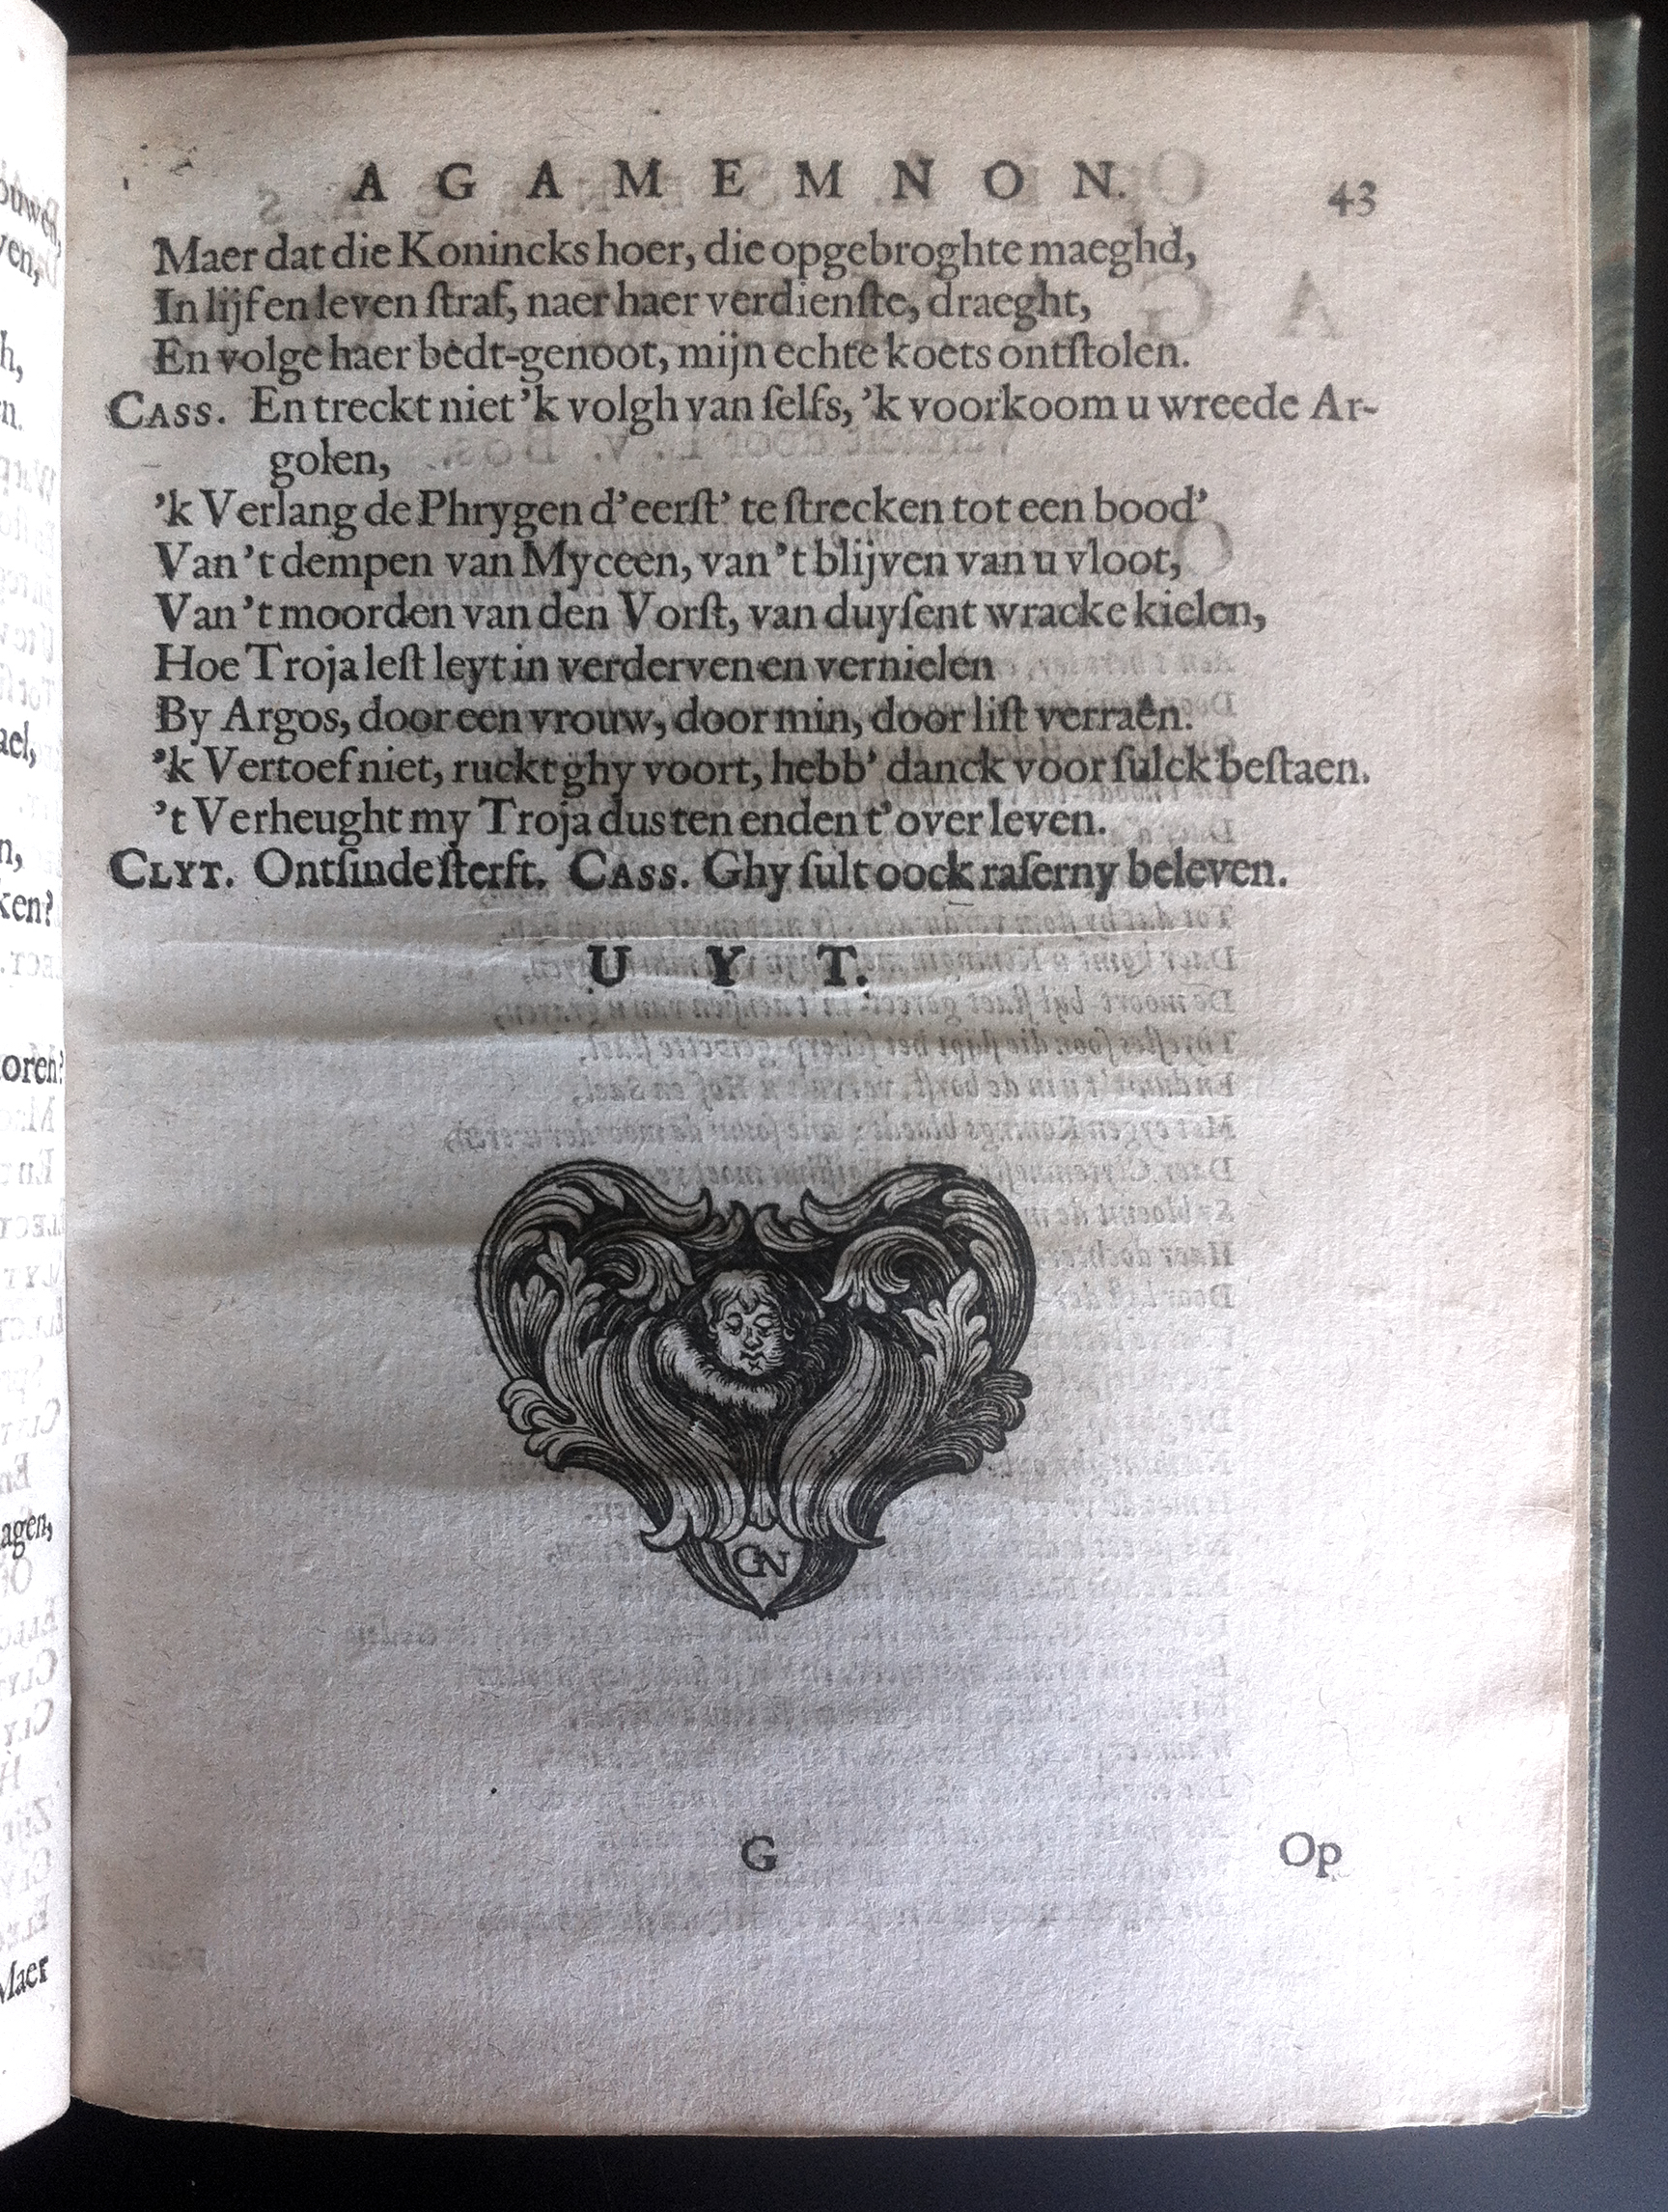 AGAMEMNON. 43
Maer dat die Konincks hoer, die opgebroghte maeghd,
In lijf en leven ſtraf, naer haer verdienſte, draeght,
En volge haer bedt-genoot, mijn echte koets ontſtolen.
CASS. En treckt niet 'k volgh van ſelfs, 'k voorkoom u wreede Ar-
golen,
'k Verlang de Phrygen d'eerſt' te ſtrecken tot een bood'
Van 't dempen van Myceen, van 't blijven van u vloot,
Van 't moorden van den Vorſt, van duyſent wracke kielen,
Hoe Troja leſt leyt in verderven en vernielen
By Argos, door een vrouw, door min, door liſt verraên.
'k Vertoef niet, ruckt ghy voort, hebb' danck voor ſulck beſtaen.
't Verheught my Troja dus ten enden t' over leven.
CLYT. Ontſinde ſterft. CASS. Ghy ſult oock raſerny beleven.
UYT.
GN
G Op
ken?
oren?
agen,
Maer